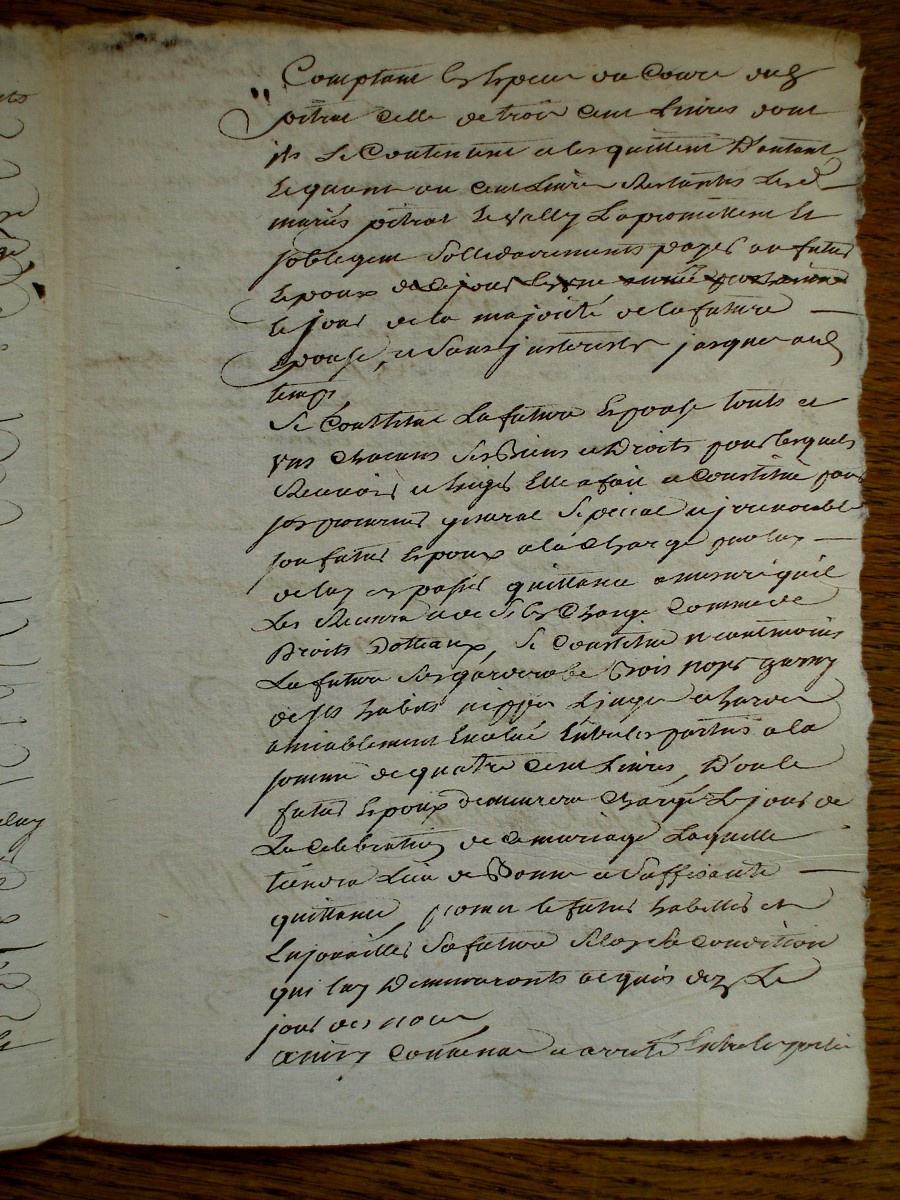 Comptant En Espece du Cours dud
pitrat Celle de trois Cent Livres dont
ils Se Contentent et les quittent D'autant
Et quant au Cent Livres Restantes Lesd
mariés pitrat Et Lapromettent Et
sobligent Sollidairements payer au futur
Epoux
le jour de la majorité de la future
Epouse, et Sans justerests jusques aud
temps,
Se Constitue La future Epouse touts et
uns Chacuns Ses Biens et Droits pour lesquels
Recevoir et Exiger Elle a fait et Constitué pour
son procureur general Special et jrrevocable
son futur Epoux a la Charge par luy
de luy en passer quittance amesure quil
Les Recevra et de Sen Charger Comme de
Droits Dotteaux, Se Constitue neanmoins
La future Ses garderobe Bois noyer garny
de Ses habits nippes Linges et hardes
amiablement Evalué Entre les parties a la
somme de quatre Cent Livres, Dont le
futur Epoux demeurera Chargé Le jour de
La Celebration de Ce mariage Laquelle
tiendra Lieu de Bonne et Suffisante
quittance, promet le futur habiller et
Enjouailler Sa future Selon Sa Condition
qui luy Demeuraronts acquis dez Le
jour des noces
ainsy Convenue et arreté Entre les parties